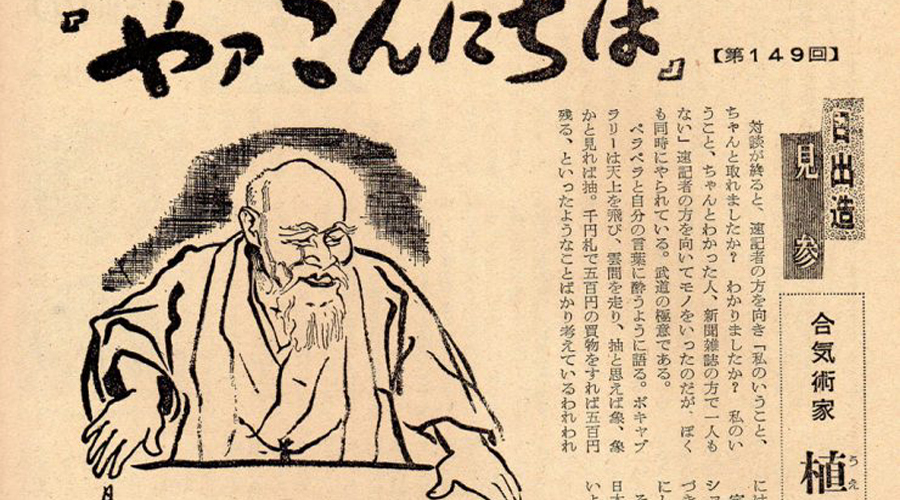 『やァこんにちは』
【第149回】
日出造
見参
合気術家
植
うえ
対談が終ると、速記者の方を向き「私のいうこと、
ちゃんと取れましたか？　わかりましたか？　私のい
うこと、ちゃんとわかった人、新聞雑誌の方で一人も
ない」速記者の方を向いてモノをいったのだが、ぼく
も同時にやられている。武道の極意である。
ペラペラと自分の言葉に酔うように語る。ボキャブ
ラリーは天上を飛び、雲間を走り、抽と思えば象、象
かと見れば抽。千円札で五百円の買物をすれば五百円
残る、といったようなことばかり考えているわれわれ
には
シス
づき
にし
日本
いよ